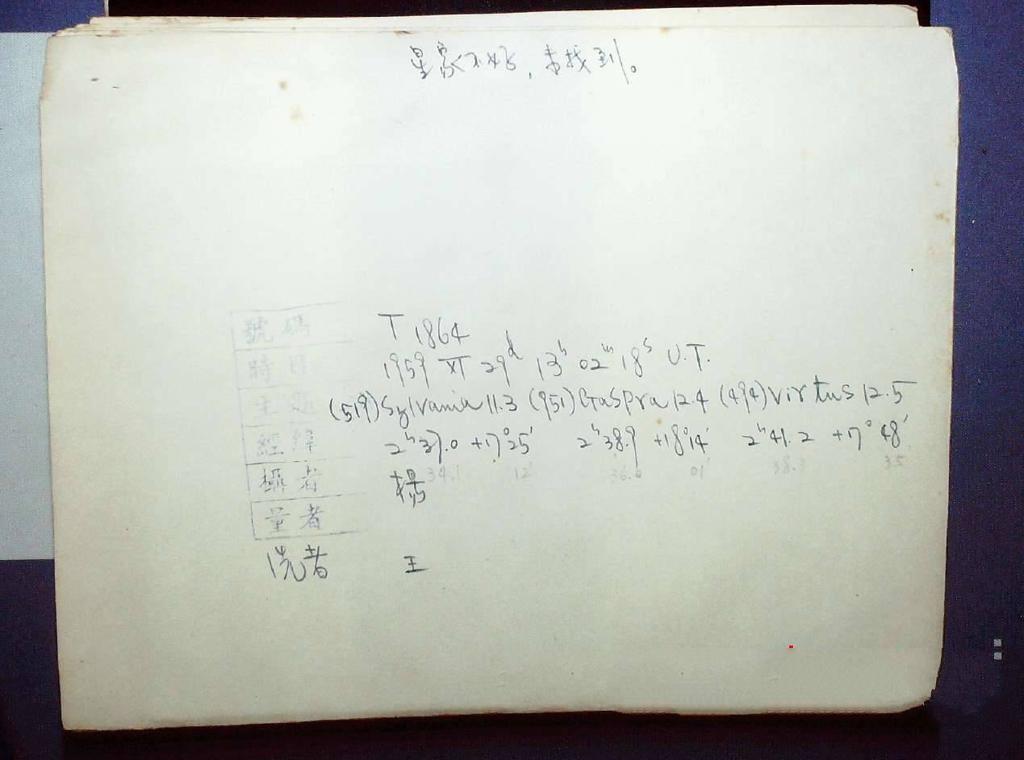 星象不好，未找到。
號碼 T 1864
時日 1959 XI 29ᵈ 13ʰ 02ᵐ 18ˢ U.T.
主題 (519) Sylvania 11.3 (951) Gaspra 12.4 (494) Virtus 12.5
經緯 2ʰ37.0 +17°25′ 2ʰ38.9 +18°14′ 2ʰ41.2 +17°48′
34.1 12′ 36.0 01′ 38.3 35
攝者 楊
量者
洗者 王